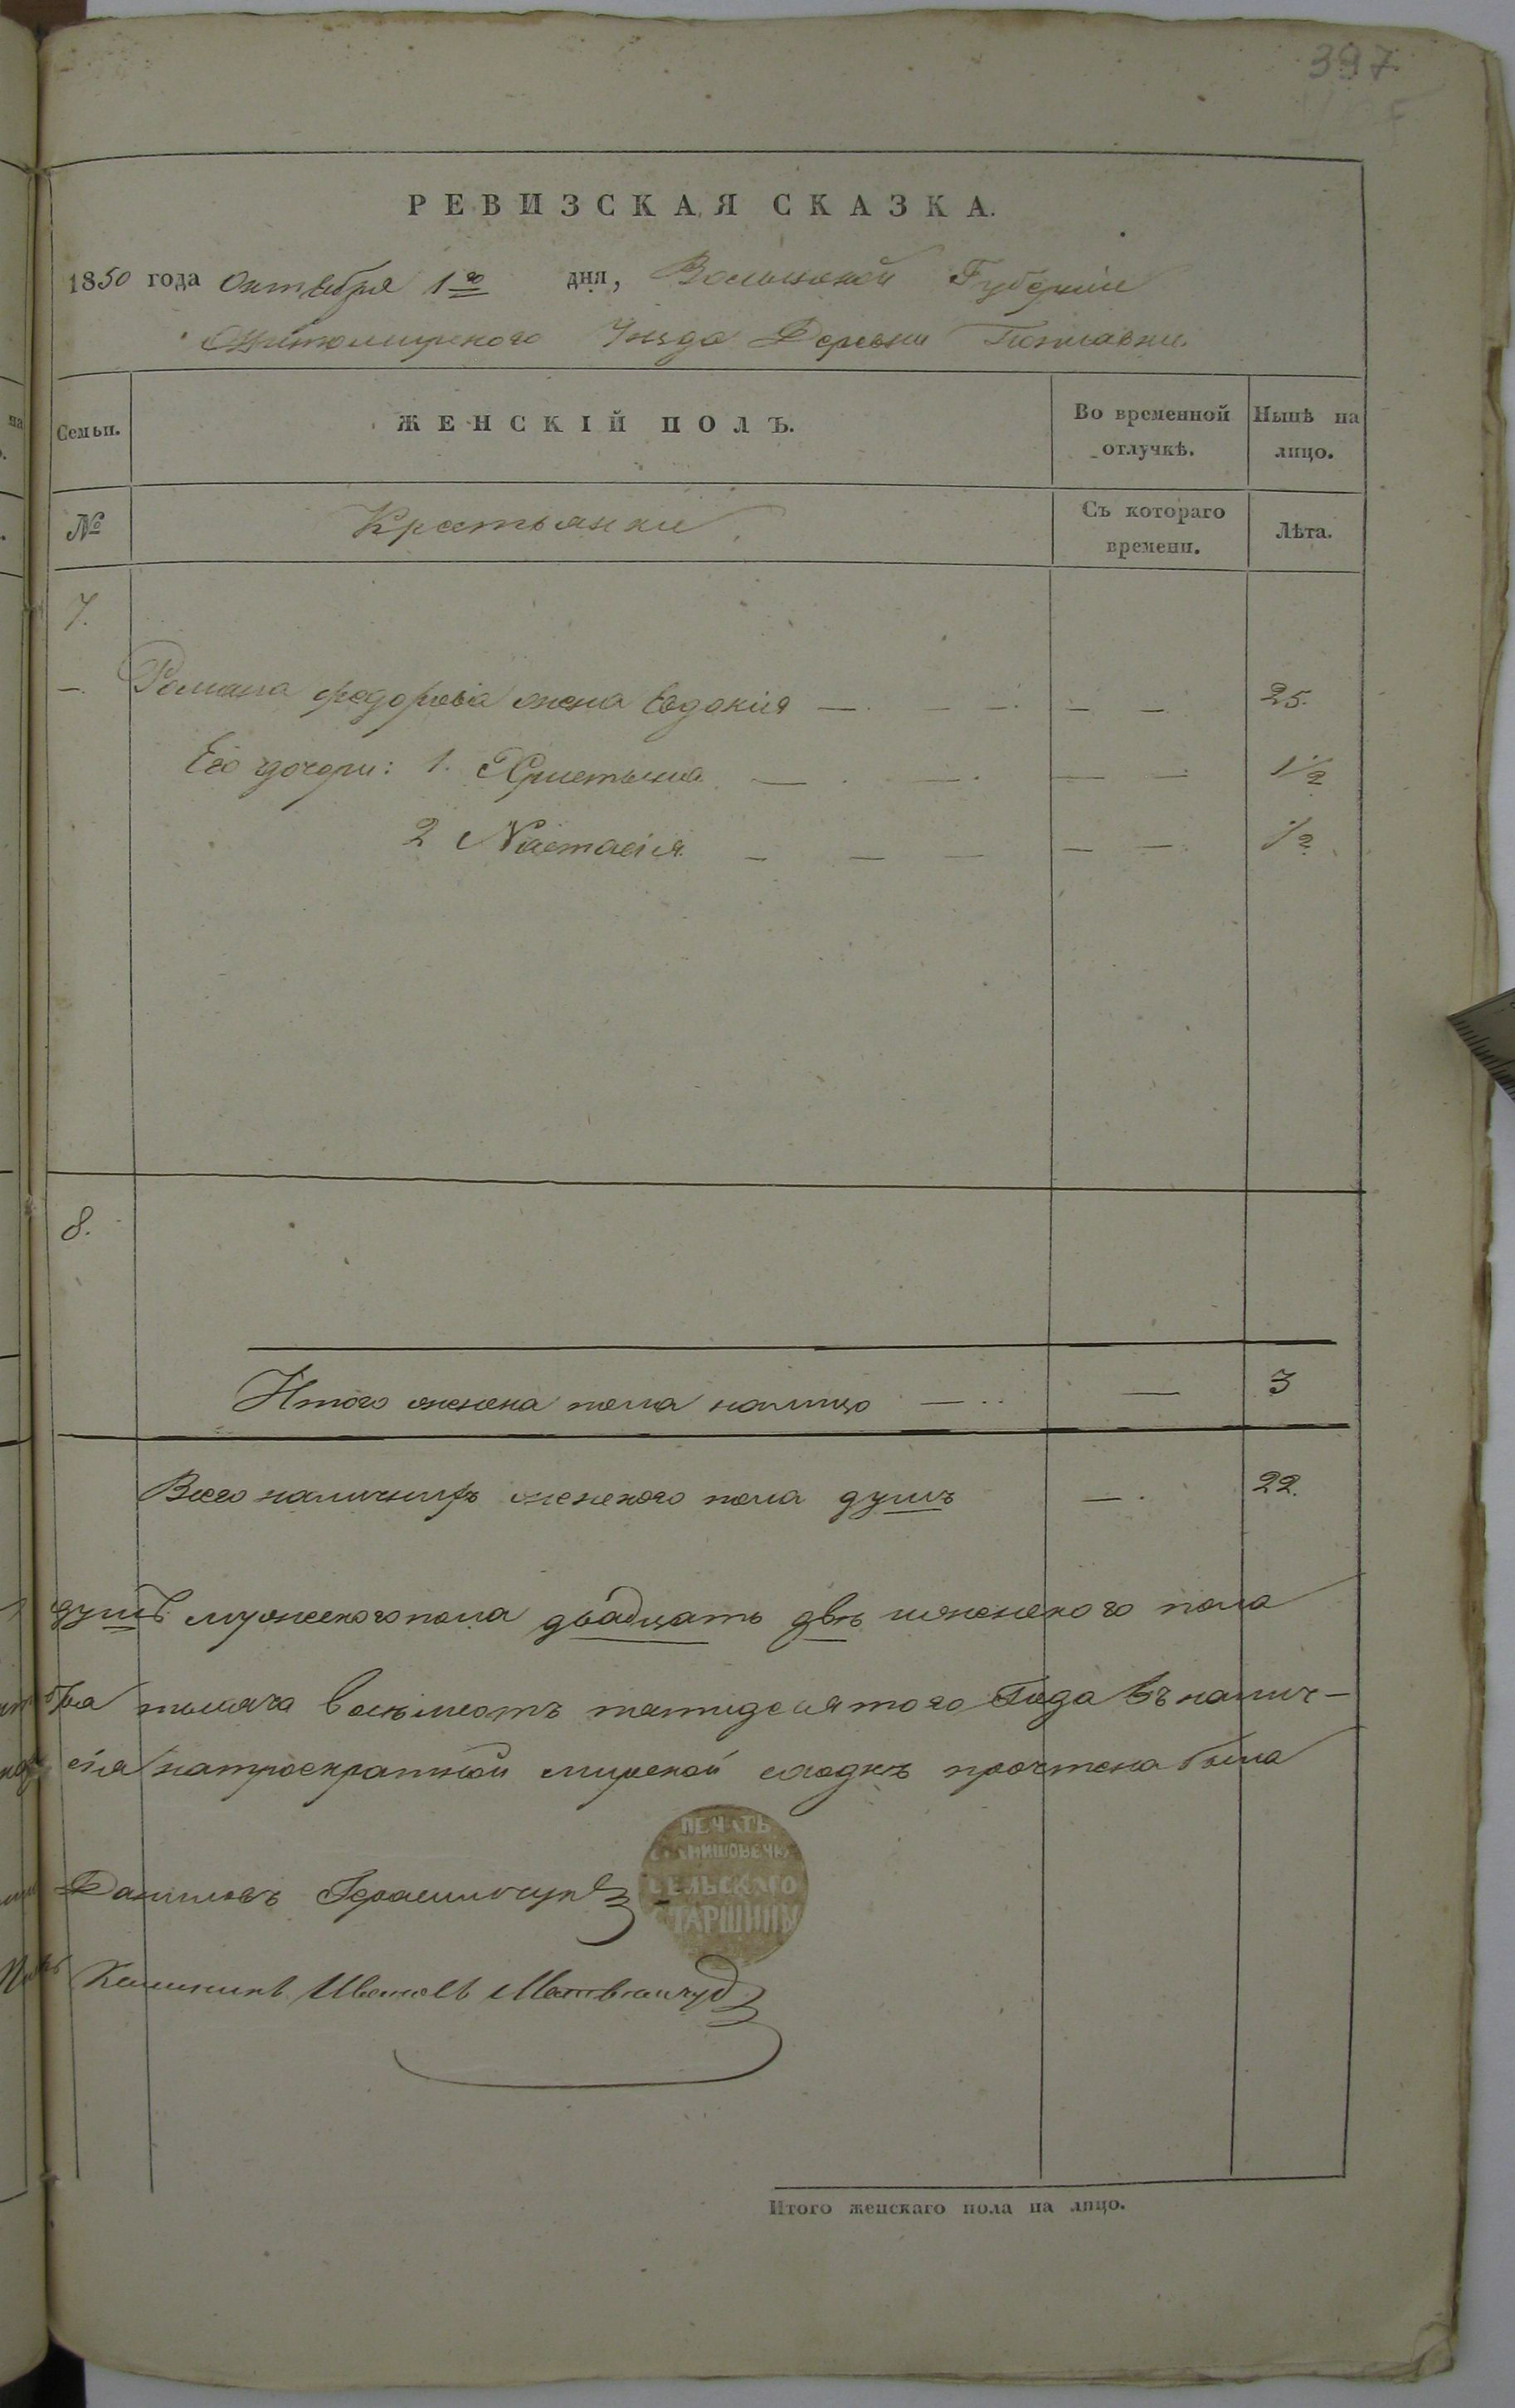 397
РЕВИЗСКАЯ СКАЗКА.
1850 года Октября 1го дня, Волынской Губернии
Житомирского Уезда Деревни
Семьи. ЖЕНСКІЙ ПОЛЪ. Во временной отлучкѣ. Нынѣ на лицо.
№ Крестьянки Съ котораго времени. Лѣта.
7.
—. Романа Федорова жена Евдокия — — — — — 25.
Его дочери: 1. Христына — — — — 1 1/2
2 Настасія — — — — — 1/2
8.
Итого женска пола налицо — — 3
Всего наличныхъ женского пола душъ — 22.
душъ мужеского пола двадцать двѣ женского пола
тысяча восьмсотъ пятидесятого Года въ налич-
мирской сходкѣ прочтена была
Даниловъ Герасимчукъ
ПЕЧАТЬ
СЕЛЬСКАГО
СТАРШИНЫ
Ивановъ
Итого женскаго пола на лицо.